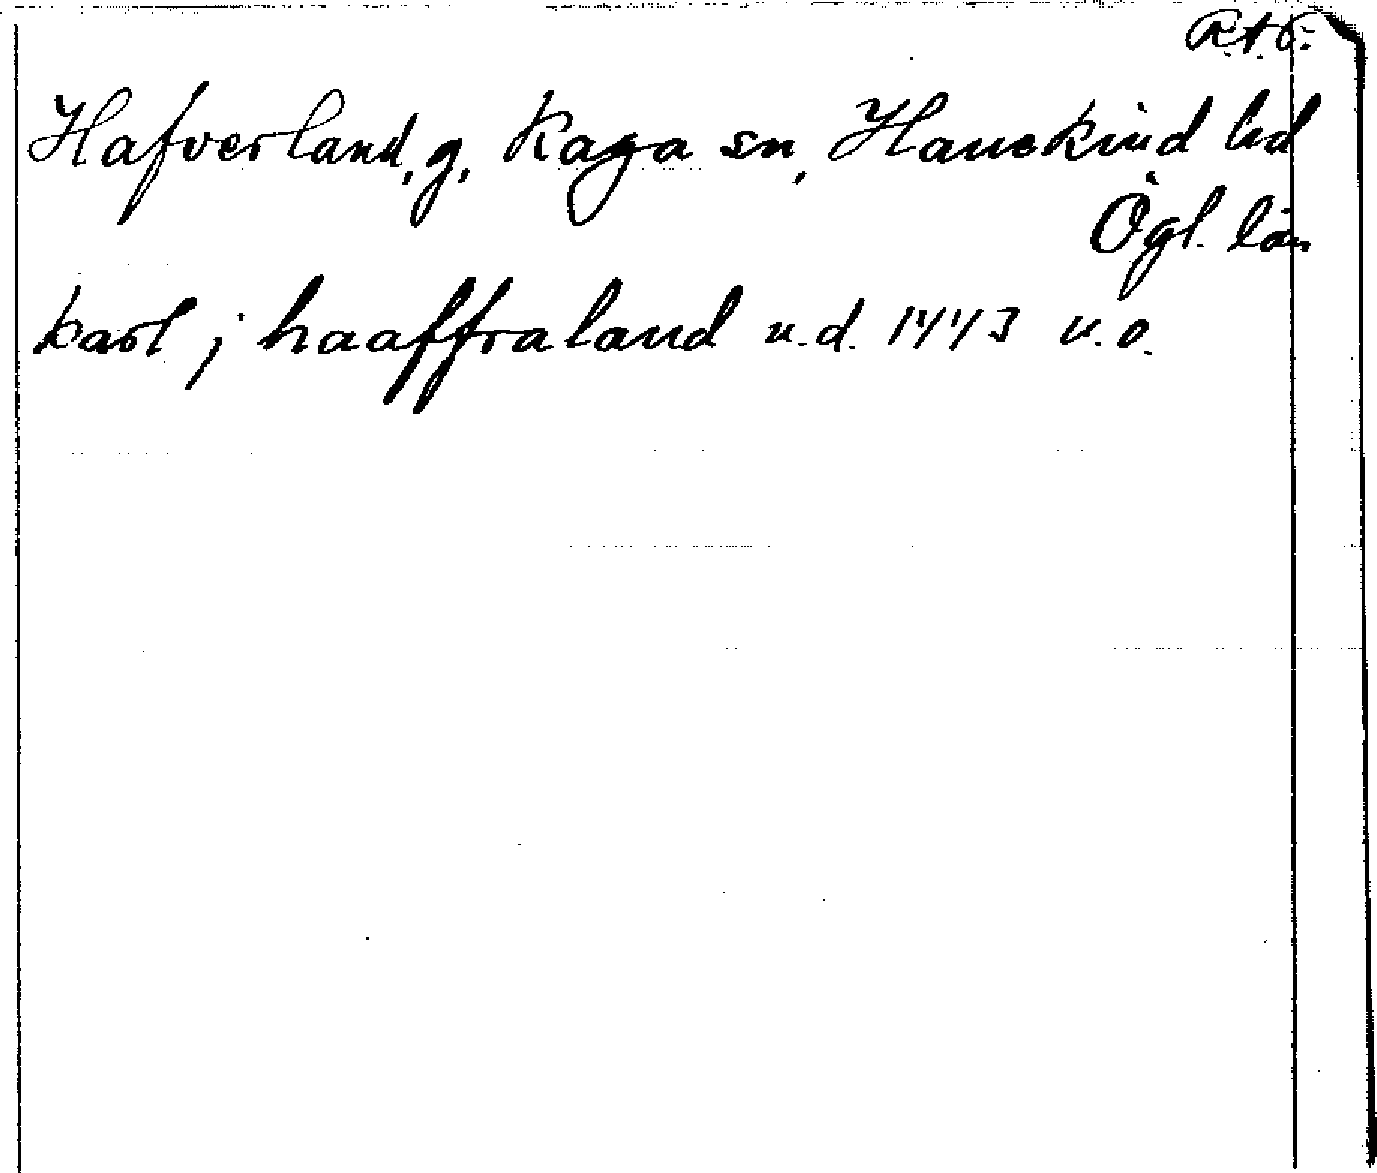 R.A.P.
Hafverland, g, Kaga sn, Hanekind hd
Ögl. län
karl j haaffraland u.d. 1443 u.o.